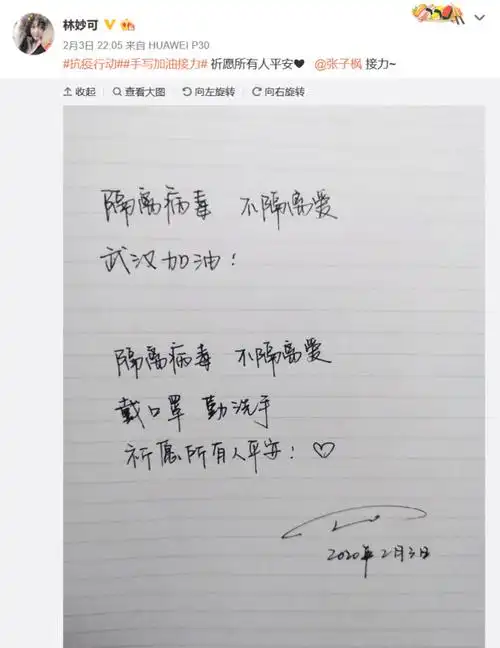 林妙可
2月3日 22:05 来自 HUAWEI P30
#抗疫行动##手写加油接力# 祈愿所有人平安❤ @张子枫 接力~
收起 查看大图 向左旋转 向右旋转
隔离病毒 不隔离爱
武汉加油！
隔离病毒 不隔离爱
戴口罩 勤洗手
祈愿所有人平安！♡
2020年2月3日